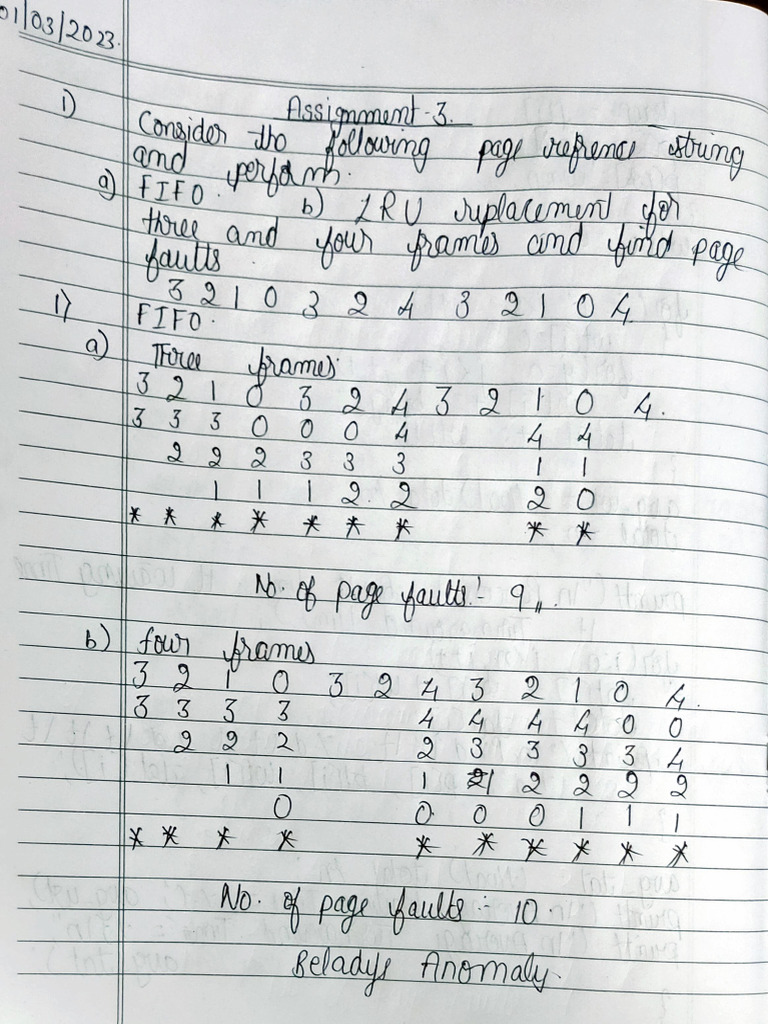 01/03/2023.
Assignment-3.
1) Consider the following page refrence string
and perform.
a) FIFO. b) LRU replacement for
three and four frames and find page
faults.
3 2 1 0 3 2 4 3 2 1 0 4
1) FIFO.
a) Three frames
3 2 1 0 3 2 4 3 2 1 0 4.
3 3 3 0 0 0 4 4 4
2 2 2 3 3 3 1 1
1 1 1 2 2 2 0
* * * * * * * * *
No. of page faults:- 9,,.
b) four frames
3 2 1 0 3 2 4 3 2 1 0 4.
3 3 3 3 4 4 4 4 0 0
2 2 2 2 3 3 3 3 4
1 1 1 1 2 2 2 2
0 0 0 0 1 1 1
* * * * * * * * * *
No. of page faults:- 10
Beladys Anomaly.